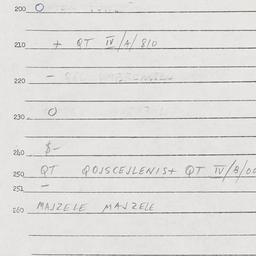 200 O
210 + QT IV/A/810
220 -
230 O
240 $-
250 QT QOJSCEJLENIS+ QT IV/B/00
251 -
260 MAJZELE MAJZELE